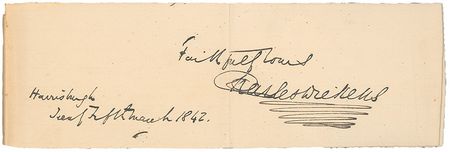 Faithfully Yours
Charles Dickens
Harrisburgh
Twenty Fifth March 1842.